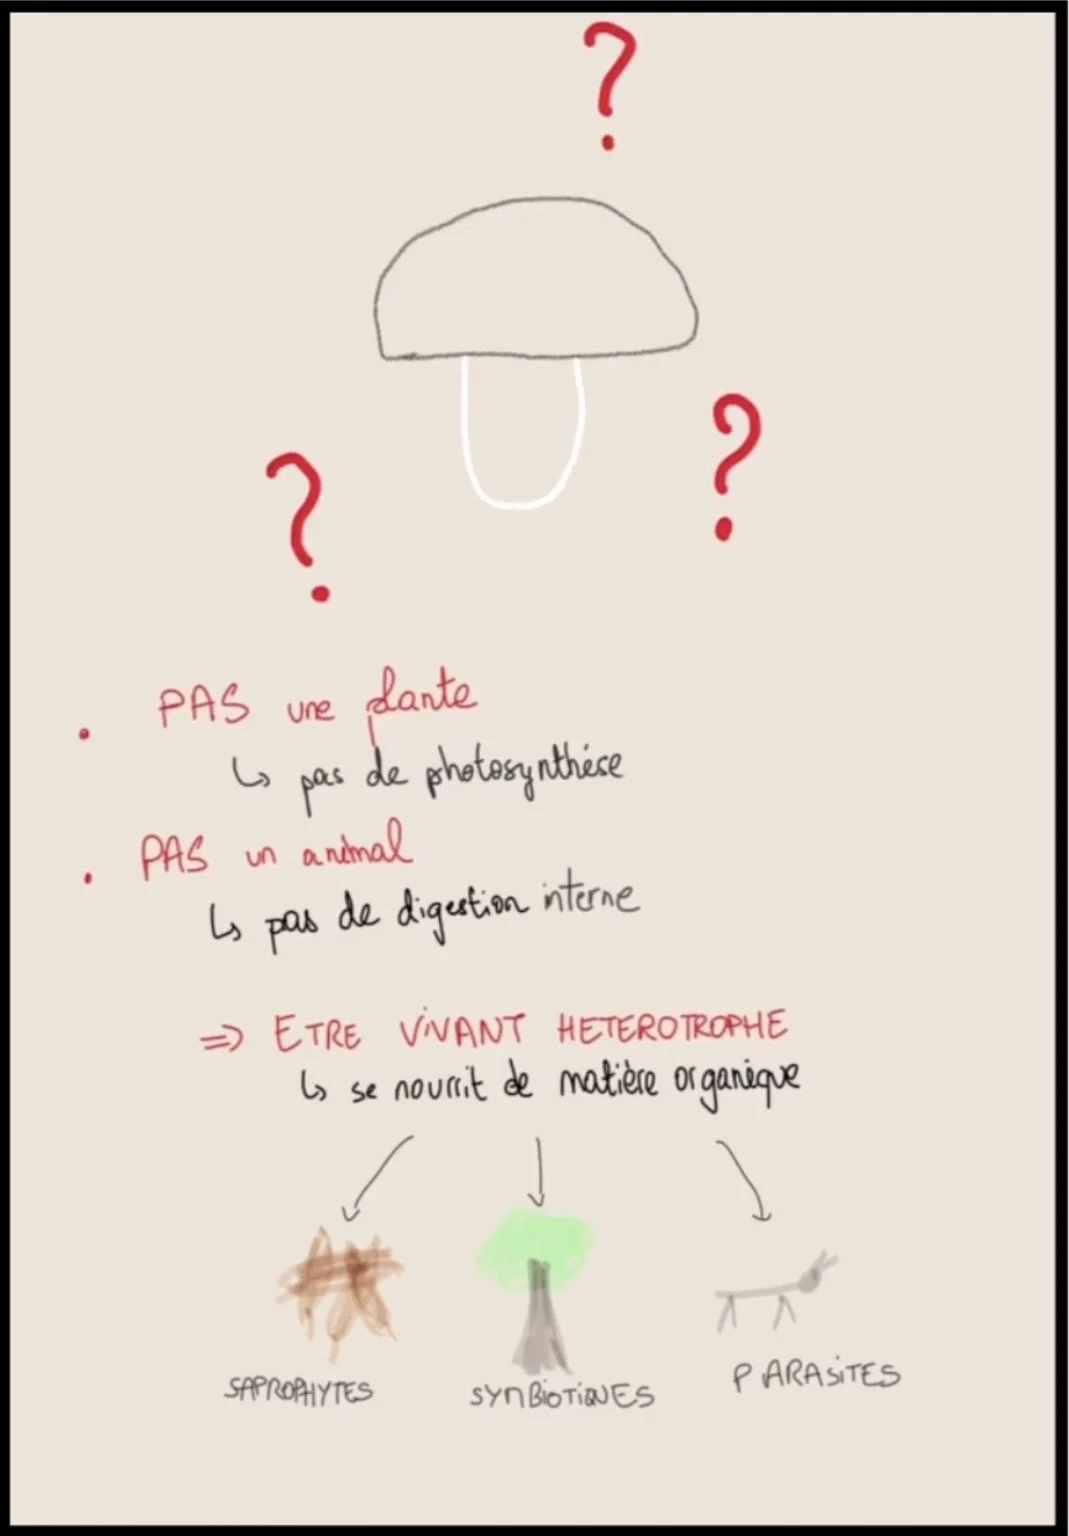 ?
?
?
. PAS une plante
↳ pas de photosynthése
. PAS un animal
↳ pas de digestion interne
=> ETRE ViVANT HETEROTROPHE
↳ se nourrit de matière organique
SAPROPHYTES SYNBiOTiQUES PARASiTES